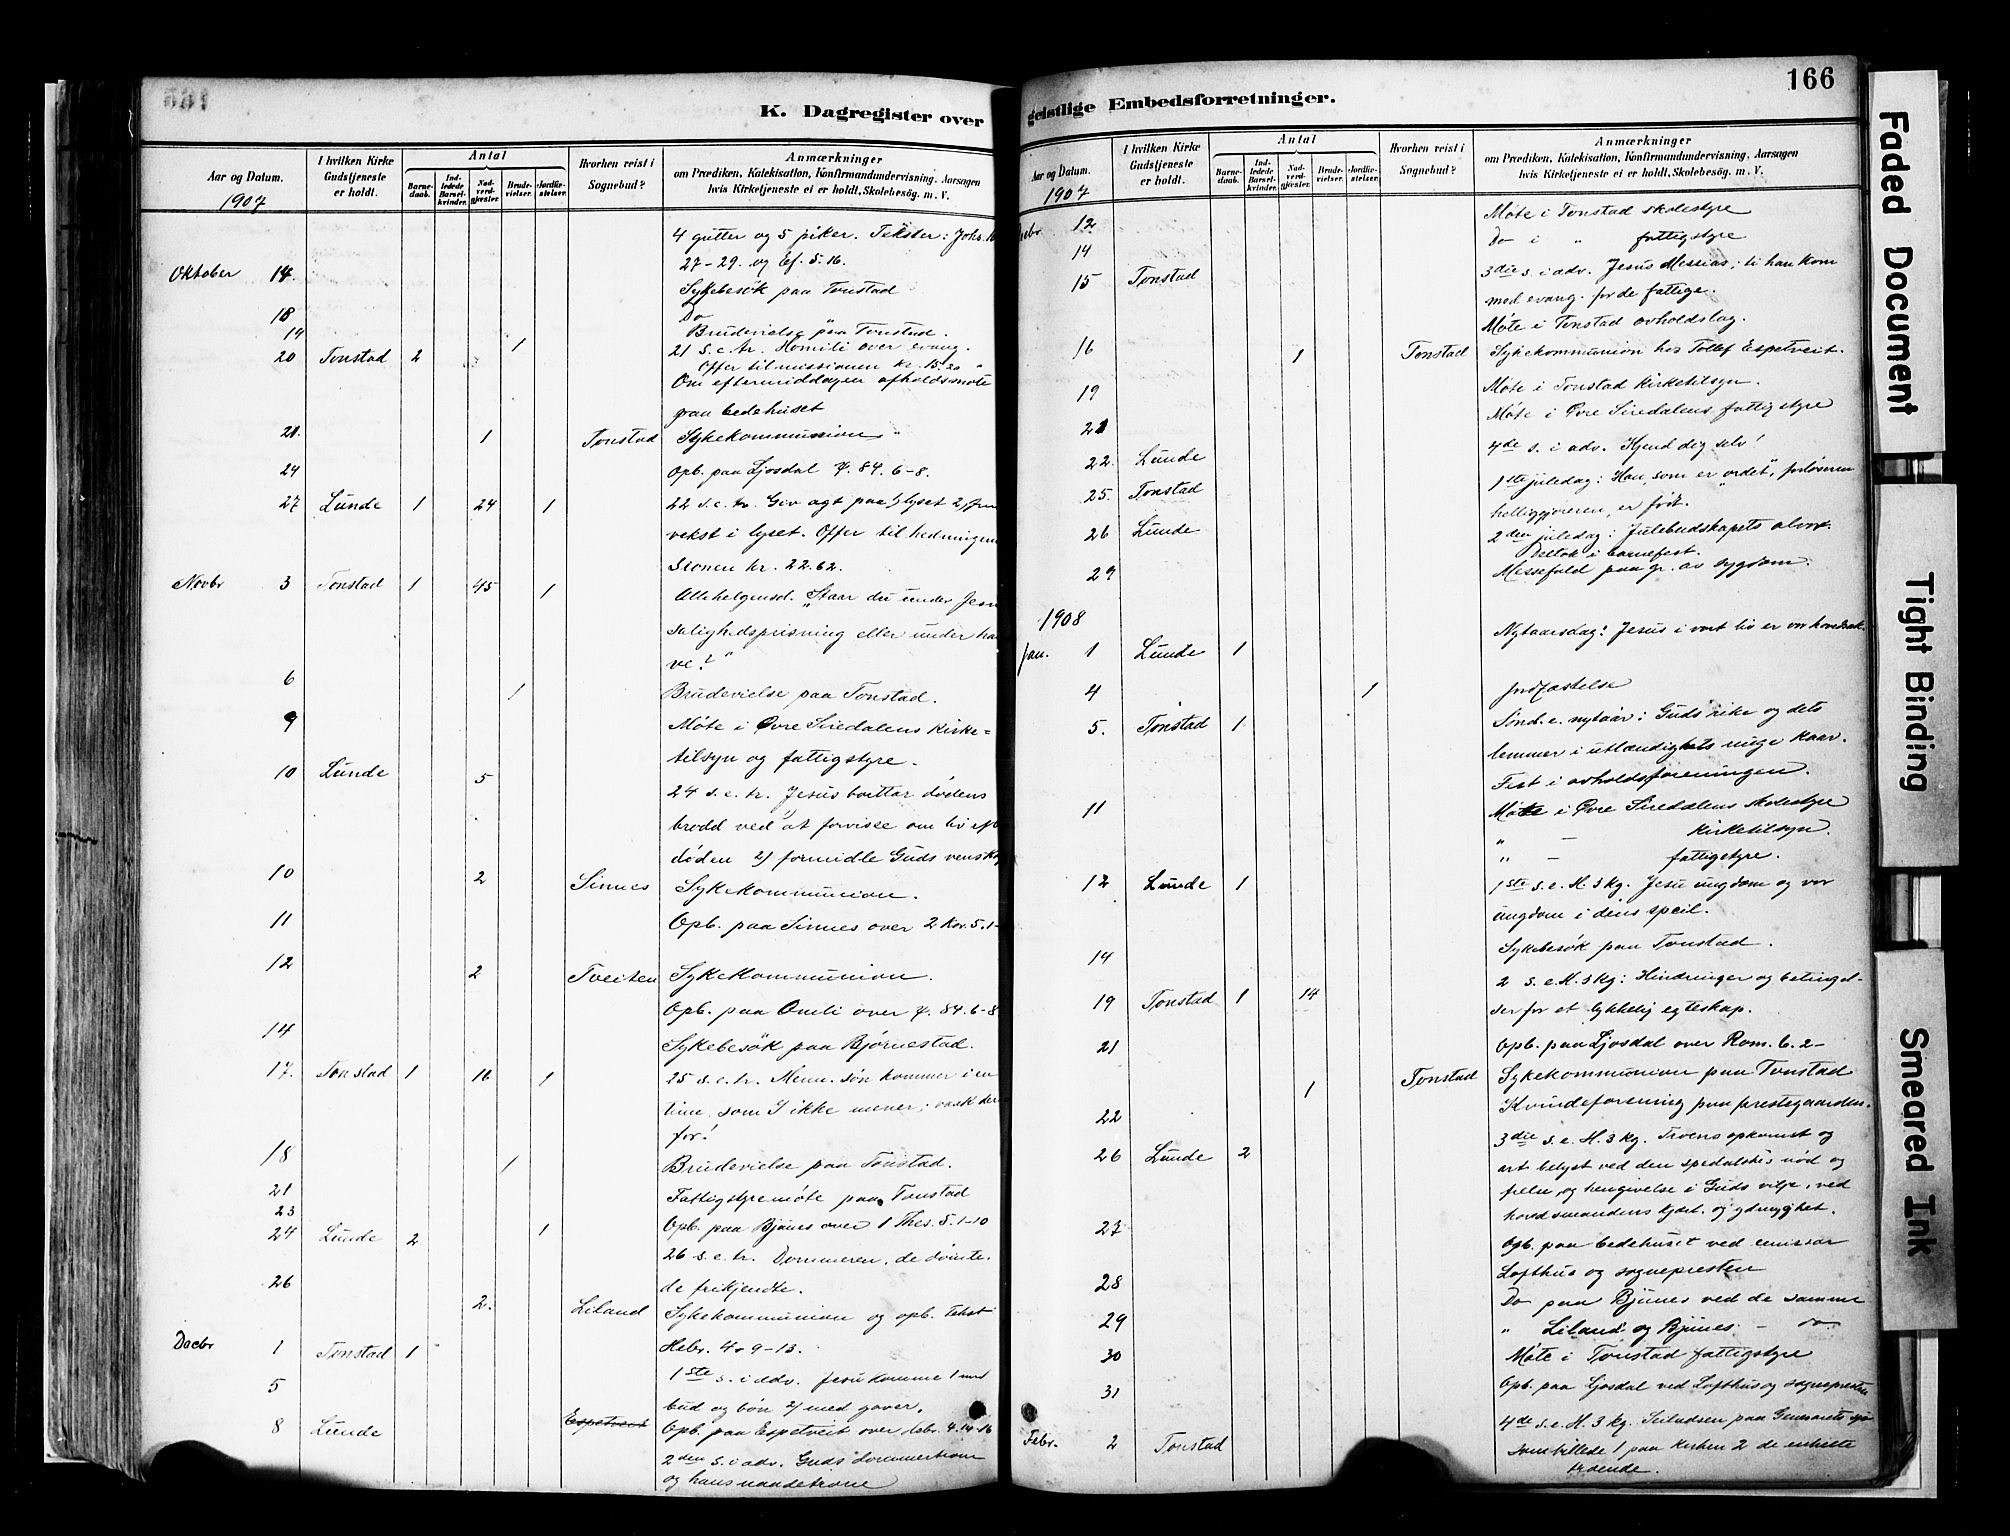 166
K. Dagregister over geistlige Embedsforretninger.
Aar og Datum.
1907
I hvilken Kirke Gudstjeneste er holdt.
Antal
Barnedaab.
Indledede Barselkvinder.
Nadverdgjester.
Brudevielser.
Jordfæstelser.
Hvorhen reist i Sognebud?
Anmærkninger
om Prædiken, Katekisation, Konfirmandundervisning, Aarsagen
hvis Kirketjeneste ei er holdt, Skolebesøg. m. V.
4 gutter og 5 piker. Tekster: Johs.
27-29. og Ef. 5.16.
Oktober 14. Sykebesök paa Tonstad
18 Do
19 1 Brudevielse paa Tonstad.
20 Tonstad 2 21 s.e.tr. Homili over evang.
Offer til missionen kr. 15.20
Om eftermiddagen afholdsmöte
paa bedehuset
21. 1 Tonstad Sykekommunion
24 Opb. paa Ljosdal ψ. 84. 6-8.
27 Lunde 1 24 1 22 s.e.tr. Giv agt paa 1) lyset 2)
vekst i lyset. Offer til hedningem
sionen kr. 22.62.
Novbr 3 Tonstad 1 45 1 Allehelgensd. "Staar du under Jesu
salighedsprisning eller under ha
ve?"
6 1 Brudevielse paa Tonstad.
9 Möte i Övre Siredalens kirke=
tilsyn og fattigstyre.
10 Lunde 5 24 s.e.tr. Jesus borttar dödens
brodd ved at forvisse om liv eft
döden 2) formidle Guds vensk
10 2 Sinnes Sykekommunion.
11 Opb. paa Sinnes over 2 Kor. 5.1-
12 2 Tveiten Sykekommunion.
Opb. paa Omli over ψ. 84. 6-8
14 Sykebesök paa Björnestad.
17. Tonstad 1 16 1 25 s.e.tr. Menn. sön kommer i en
time, som I ikke mener; vaak der
for!
18 1 Brudevielse paa Tonstad.
21 Fattigstyremöte paa Tonstad
23 Opb. paa Bjunes over 1 Thes. 5. 1-10
24 Lunde 2 1 26 s.e.tr. Dommeren, de dömte.
de frikjendte.
26 2. Liland Sykekommunion og opb. Tekst
Hebr. 4. 9-13.
Decbr 1 Tonstad 1 1ste s. i adv. Jesu komme 1 med
bud og bön 2) med gaver.
5 Espetveit Opb. paa Espetveit over hebr. 4.14-16
8 Lunde 2den s. i adv. Guds dommertrone
og hans naadetrone
Aar og Datum.
1907
I hvilken Kirke Gudstjeneste er holdt.
Antal
Barnedaab.
Indledede Barselkvinder.
Nadverdgjester.
Brudevielser.
Jordfæstelser.
Hvorhen reist i Sognebud?
Anmærkninger
om Prædiken, Katekisation, Konfirmandundervisning, Aarsagen
hvis Kirketjeneste ei er holdt, Skolebesøg. m. V.
Decbr. 12 Möte i Tonstad skolestyre
14 Do i " fattigstyre
15 Tonstad 3die s. i adv. Jesus Messias; ti han kom
med evang. for de fattige.
Möte i Tonstad avholdslag.
16 1 Tonstad Sykekommunion hos Tollef Espetveit.
19 Möte i Tonstad kirketilsyn.
21 Möte i Övre Siredalens fattigstyre
22. Lunde 4de s. i adv. Kjend dig selv!
25. Tonstad 1ste juledag: Han, som er "ordet", forlöseren
helliggjöreren, er född.
26 Lunde 2den juledag: Julebudskapets alvor.
Deltok i barnefest.
29 Messefald paa gr. av sygdom.
1908
Jan. 1 Lunde 1 Nytaarsdag: Jesus i vort liv er vor hovedsak.
4 1 Jordfæstelse
5. Tonstad 1 Sönd. e. nytaar: Guds rike og dets
lemmer i utlændighets ringe kaar.
Fest i avholdsforeningen.
11 Möte i Övre Siredalens skolestyre
" - kirketilsyn.
" - fattigstyre.
12 Lunde 1 1ste s. e. H. 3 kg. Jesu ungdom og vor
ungdom i dens speil.
14 Sykebesök paa Tonstad.
19 Tonstad 1 14 2 s. e. H. 3 kg: Hindringer og betingel-
ser for et lykkelig egteskap.
21 Opb. paa Ljosdal over Rom. 6. 2-
1 Tonstad Sykekommunion paa Tonstad
22 Kvindeforening paa prestegaarden.
26 Lunde 2 3die s. e. H. 3 kg. Troens opkomst og
art belyst ved den spedalskes nöd og
frelse, og hengivelse i Guds vilje, ved
hovedsmandens kjærl. og ydmyghet.
27 Opb. paa bedehuset ved emissær
Lofthus og sognepresten
28 Do paa Bjunes ved de samme
29 " Liland og Bjunes - do
30 Möte i Tonstad fattigstyre
31 Opb. paa Ljosdal ved Lofthus og sognepresten
Febr. 2 Tonstad 4de s. e. H. 3 kg. Seiladsen paa Genesarets sjö
som billede 1 paa kirken 2 de enkelte
troende.
Faded Document
Tight Binding
Smeared Ink